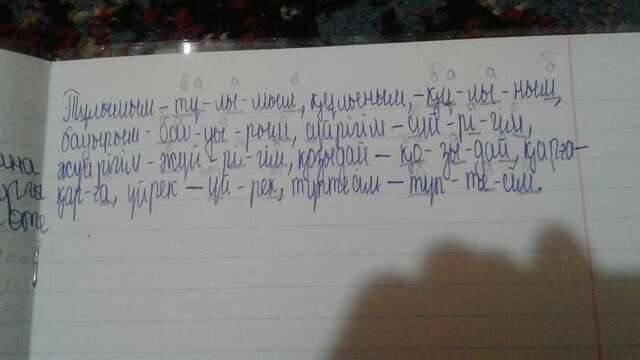 ба а б ба а б
Тулымым - ту - лы - мым, құлыным, - құ - лы - ным,
бауырым - бау - ы - рым, сүйрігім - сүй - рі - гім,
жүйрігім - жүй - рі - гім, қозыдай - қо - зы - дай, қарға -
қар - ға, үйрек - үй - рек, түптесім - түп - те - сім.
ана